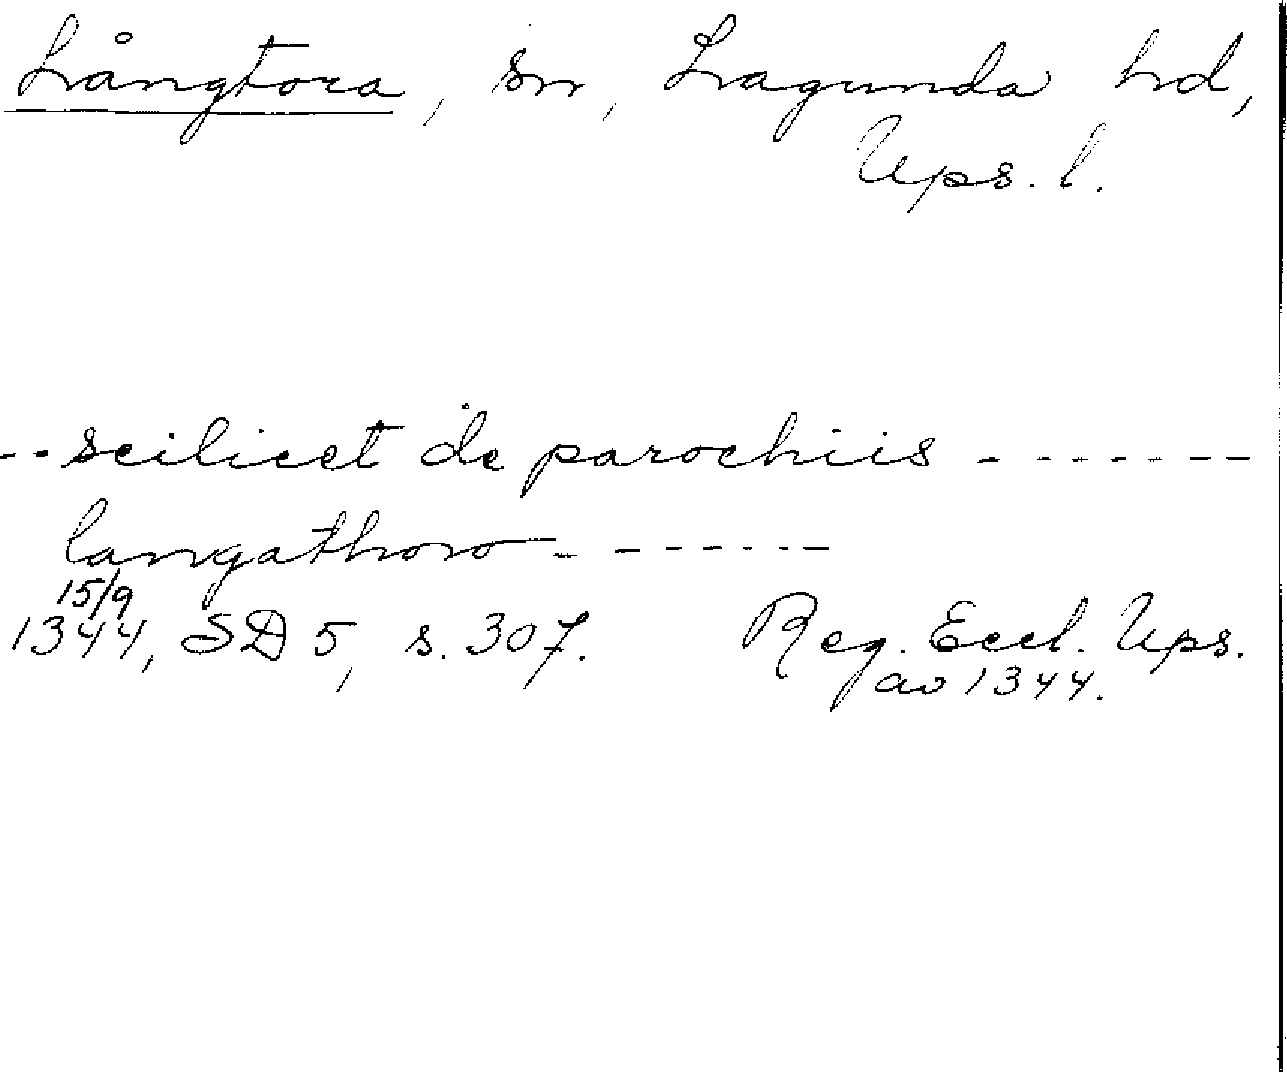 Långtora, sn, Lagunda hd,
Ups. l.
-- scilicet de parochiis -------
langathoro- ------
15/9
1344, SD 5, s. 307. Reg. Eccl. Ups.
av 1344.